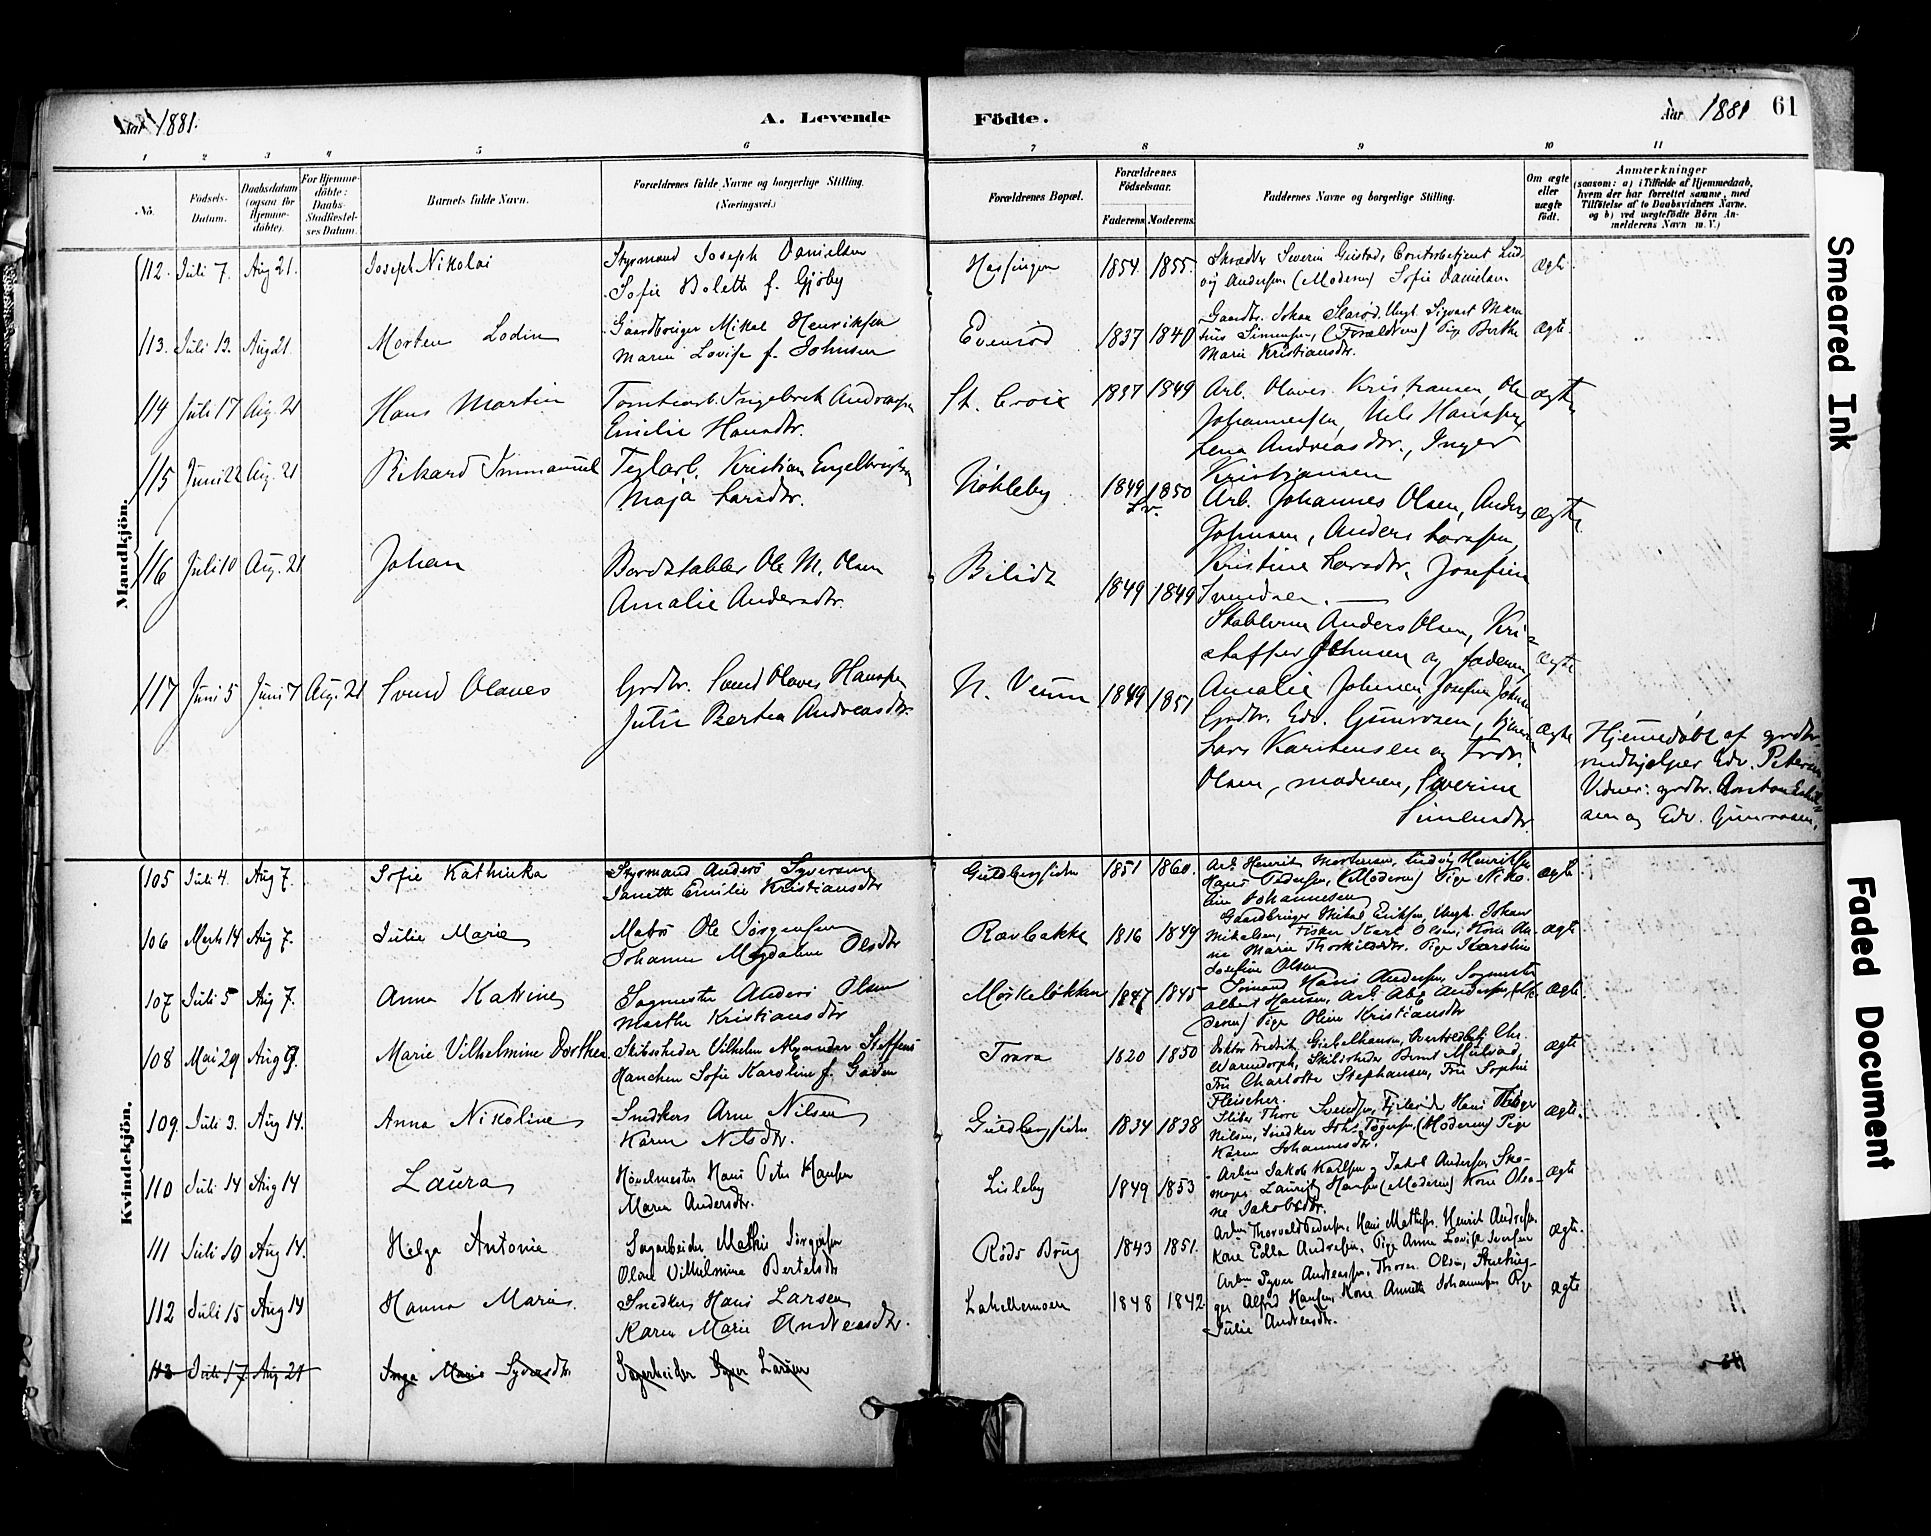 Aar 1881.
A. Levende
Födte.
Aar 1881
61
1 2 3 4 5 6 7 8 9 10 11
No.
Födsels-Datum.
Daabsdatum (ogsaa for Hjemme-döbte).
For Hjemme-döbte: Daabs-Stadfæstel-ses Datum.
Barnets fulde Navn.
Forældrenes fulde Navne og borgerlige Stilling. (Næringsvei.)
Forældrenes Bopæl.
Forældrenes Födselsaar.
Faderens. Moderens.
Faddernes Navne og borgerlige Stilling.
Om ægte eller uægte födt.
Anmærkninger
(saasom: a) i Tilfælde af Hjemmedaab,
hvem der har forrettet samme, med
Tilföielse af to Daabsvidners Navne,
og b) ved uægtefödte Börn An-
melderens Navn m. V.)
Mandkjön.
112. Juli 7. Aug 21. Joseph Nikolai
Styrmand Joseph Danielsen
Sofie Bolette f. Gjöby
1854. 1855.
Skrædder Severin
Andersen (Moderen) Sofie Danielsen
Ægte
113. Juli 13. Aug 21. Morten Lodin
Gaardbruger Mikal Henriksen
Maren Lovise f. Johnsen
Evenröd 1837 1840
Gaardbr. Johan Ungk. Sigvart
Simensen, (Forældrene) Pige Berthe
Marie Kristiansdtr.
Ægte.
114 Juli 17 Aug. 21 Hans Martin
Tomtearb. Ingebret Andreasen
Emilie Hansdtr.
St. Croix 1837 1849
Arb. Olaves Kristiansen, Ole
Johannesen, Nils Hansen,
Lena Andreasdtr., Inger
Kristiansen
Ægte
115 Juni 22 Aug. 21 Rikard Immanuel
Teglarb. Kristian Engelbrigtsen
Maja Larsdtr.
Nökleby 1849 1850
Arb. Johannes Olsen, Anders
Johnsen, Anders Larssen,
Kristine Larsdtr., Josefine
Svendsen.
Ægte
116 Juli 10 Aug. 21 Johan
Bordstabler Ole M. Olsen
Amalie Andersdtr.
Bilidt 1849 1849
Stablerne Anders Olsen, Kri-
stoffer Johnsen og faderen,
Amalie Johnsen, Josefine
Ægte
117 Juni 5 Juni 7 Aug. 21 Svend Olaves
Grdbr. Svend Olaves Hanssen
Julie Bertea Andreasdtr.
N. Veum 1849 1851
Grdbr. Edv. Gunrosen,
Lars Karstensen og
Olsen, moderen, Severine
Simensdtr.
Ægte
Hjemmedöbt af grdbr.
medhjelper Edv. Petersen
Vidner: grdbr. Anton
sen og Edv. Gunrosen.
Kvindekjön.
105 Juli 4. Aug 7. Sofie Kathinka
Styrmand Anders Syversen
Janette Emilie Kristiansdtr
Guldbergsiden 1851 1860.
Arb. Henrik Mortensen, Ludvig Henriksen
Hans Pedersen, (Moderen) Pige Niko-
line Johannesen
ægte.
106 Marts 14 Aug 7. Julie Marie
Matros Ole Jörgensen
Johanne Magdalene Olsdtr
Ravbakke 1816 1849
Gaardbruger Mikal Eriksen, Ungk. Johan
Mikalsen, Fisker Karl Olsen, Kone An-
ne Marie Thorkildsdtr. Pige Karoline
Josefine Olsen
ægte
107 Juli 5 Aug 7. Anna Katrine
Sagmester Anders Olsen
Marthe Kristiansdtr
Mörkelökken 1847 1845
Sömand Hans Andersen, Sagmester
Albert Hansen, Arb. Andersen, (Mo-
deren) Pige Oline Kristiansdtr
Ægte.
108 Mai 29 Aug 9. Marie Vilhelmine Dorthea
Skibsreder Vilhelm Alexander Steffens
Hanchen Sofie Karoline f. Gaden
Trara 1820 1850
Doktor Fredrik Chr.
Warendorph, Skibsreder Bernt
Fru Charlotte Stephansen, Fru Sophie
Fleischer.
ægte
109 Juli 3. Aug 14. Anna Nikoline
Snedker Arne Nilsen
Karen Nilsdtr.
Guldbergsiden 1834 1838
Thore Svendsen, Hans
Nilsen, Snedker Johs. (Moderen) Pige
Karen Johannesdtr.
Ægte.
110 Juli 14 Aug 14 Laura
Hövelmester Hans Peter Hansen
Maren Andersdtr.
Lisleby 1849 1853
Jakob Karlsen, Jakob Andersen, Sko-
mager Lauritz Hansen (Moderen) Kone Olea-
ne Jakobsdtr.
Ægte
111 Juli 10 Aug 14. Helga Antonie
Sagarbeider Mathis Jörgensen
Olave Vilhelmine Bertelsdtr
Röds Brug 1843 1851.
Thorvald Pedersen, Hans Mathisen, Henrik Andresen,
Kone Edla Andresen, Pige Anne Lovise Iversen
ægte.
112 Juli 15 Aug 14 Hanna Marie
Snedker Hans Larsen
Karen Marie Andreasdtr.
Lahellemoen 1848 1842
Syver Andreassen, Thorer Olsen,
Alfred Hansen, Kone Annette Johannesen Pige
Julie Andreasdtr.
ægte
113 Juli 17 Aug 21 Inga Marie Syversdtr.
Sagarbeider Syver Larsen
Smeared Ink
Faded Document